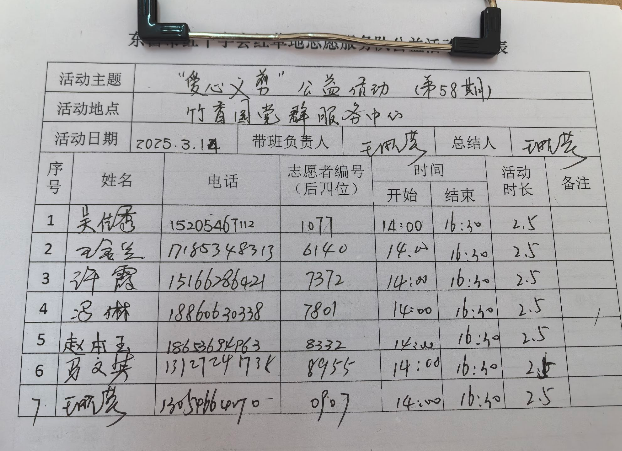 红草地志愿服务队公益活
表
活动主题 "爱心义剪"公益活动（第58期）
活动地点 竹香园党群服务中心
活动日期 2025.3.14 带班负责人 总结人
序号 姓名 电话 志愿者编号（后四位） 时间 开始 结束 活动时长 备注
1 吴佳秀 15205467112 1077 14:00 16:30 2.5
2 17185348313 6140 14:00 16:30 2.5
3 许霞 15166286421 7372 14:00 16:30 2.5
4 冯琳 18860630338 7801 14:00 16:30 2.5
5 赵本玉 18653694963 8332 14:00 16:30 2.5
6 8955 14:00 16:30 2.5
7 0907 14:00 16:30 2.5